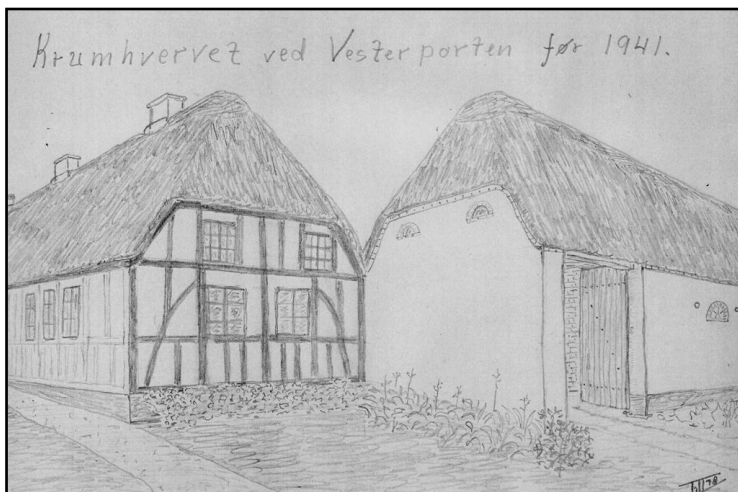 Krumhvervet ved Vesterporten før 1941.